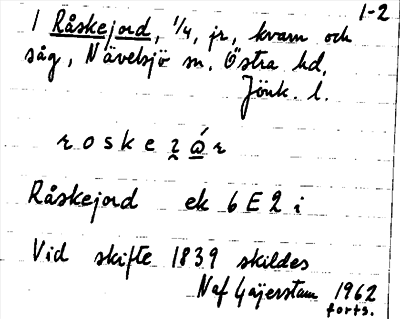 1-2
1 Råskejord, 1/4, jr, kvarn och
såg, Nävelsjö sn, Östra hd,
Jönk. l.
Råskejord ek 6E2i
Vid skifte 1839 skildes
Naf Gajerstam 1962
forts.